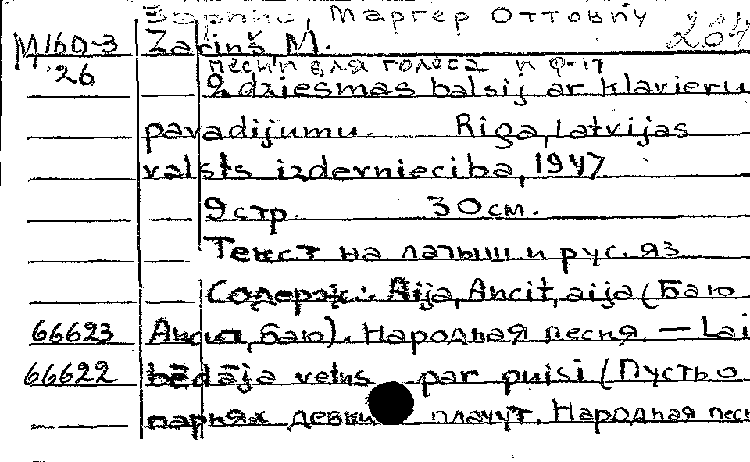 Зариньш, Маргер Оттович
M160-3 Zariņš, M. 264
26 песни для голоса и ф-п
2 dziesmas balsij ar klavieru
pavadijumu. Riga, Latvijas
valsts izdevnieciba, 1947
9 стр. 30 см.
Текст на латыш и рус. яз
Содерж.: Aija, Ancit, aija (Баю
66623 Ансит, баю). Народная песня. — Lai
66622 bēdāja velns par puisi (Пусть о
парнях девки плачут. Народная песн